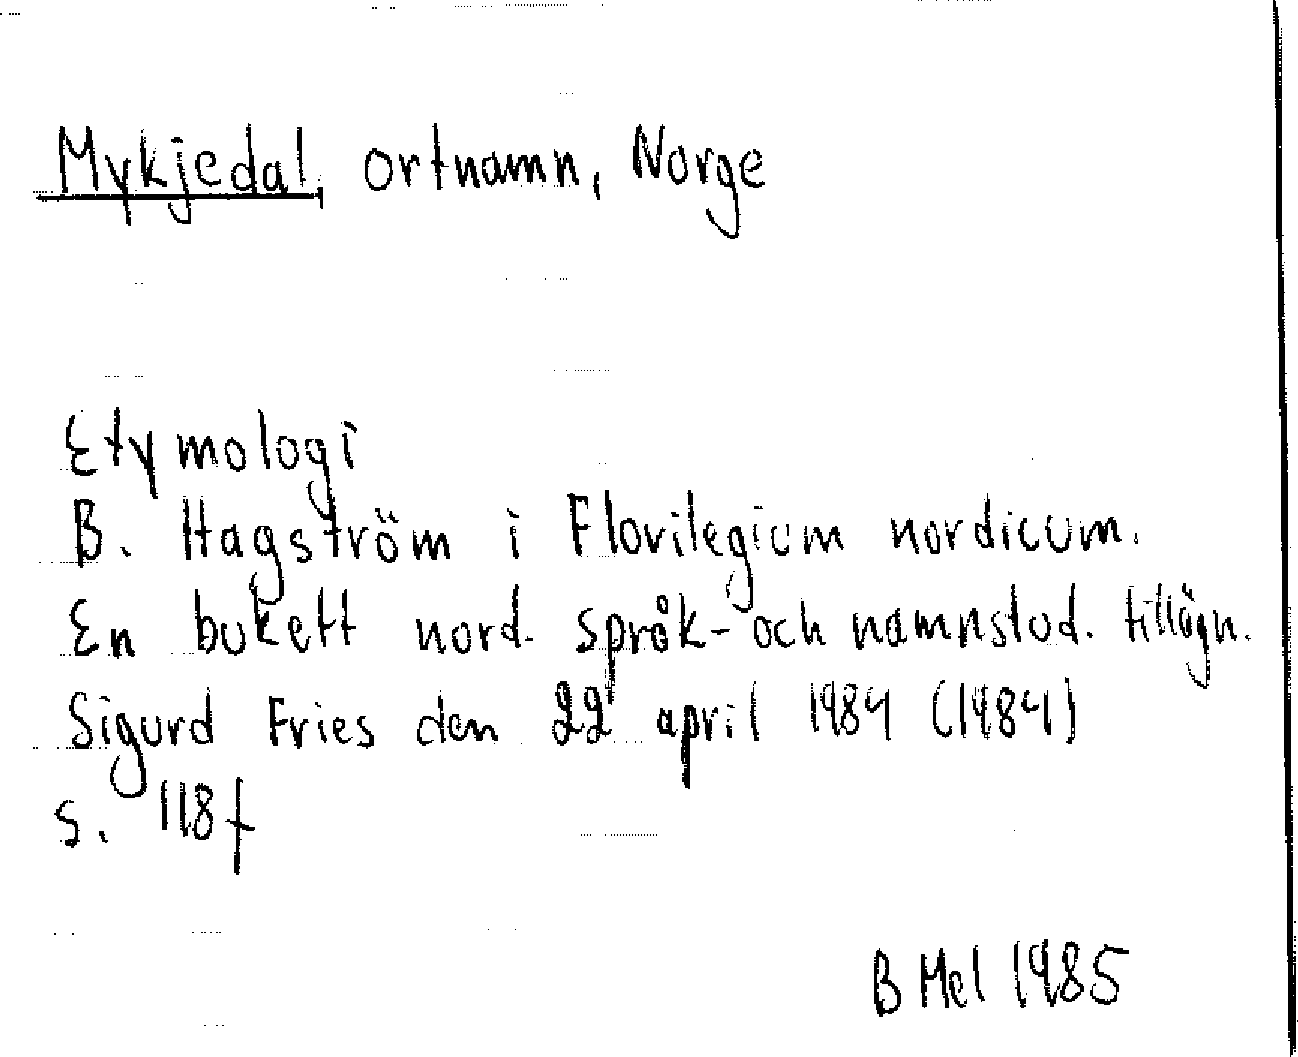 Mykjedal, ortnamn, Norge
Etymologi
B. Hagström i Florilegium nordicum.
En bukett nord. språk- och namnstud. tillägn.
Sigurd Fries den 22 april 1984 (1984)
s. 118f
B Mel 1985